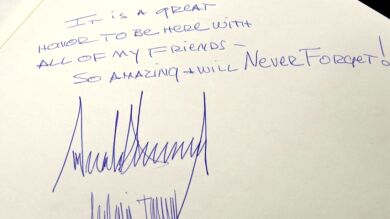 IT IS A GREAT
HONOR TO BE HERE WITH
ALL OF MY FRIENDS –
SO AMAZING + WILL NEVER FORGET!